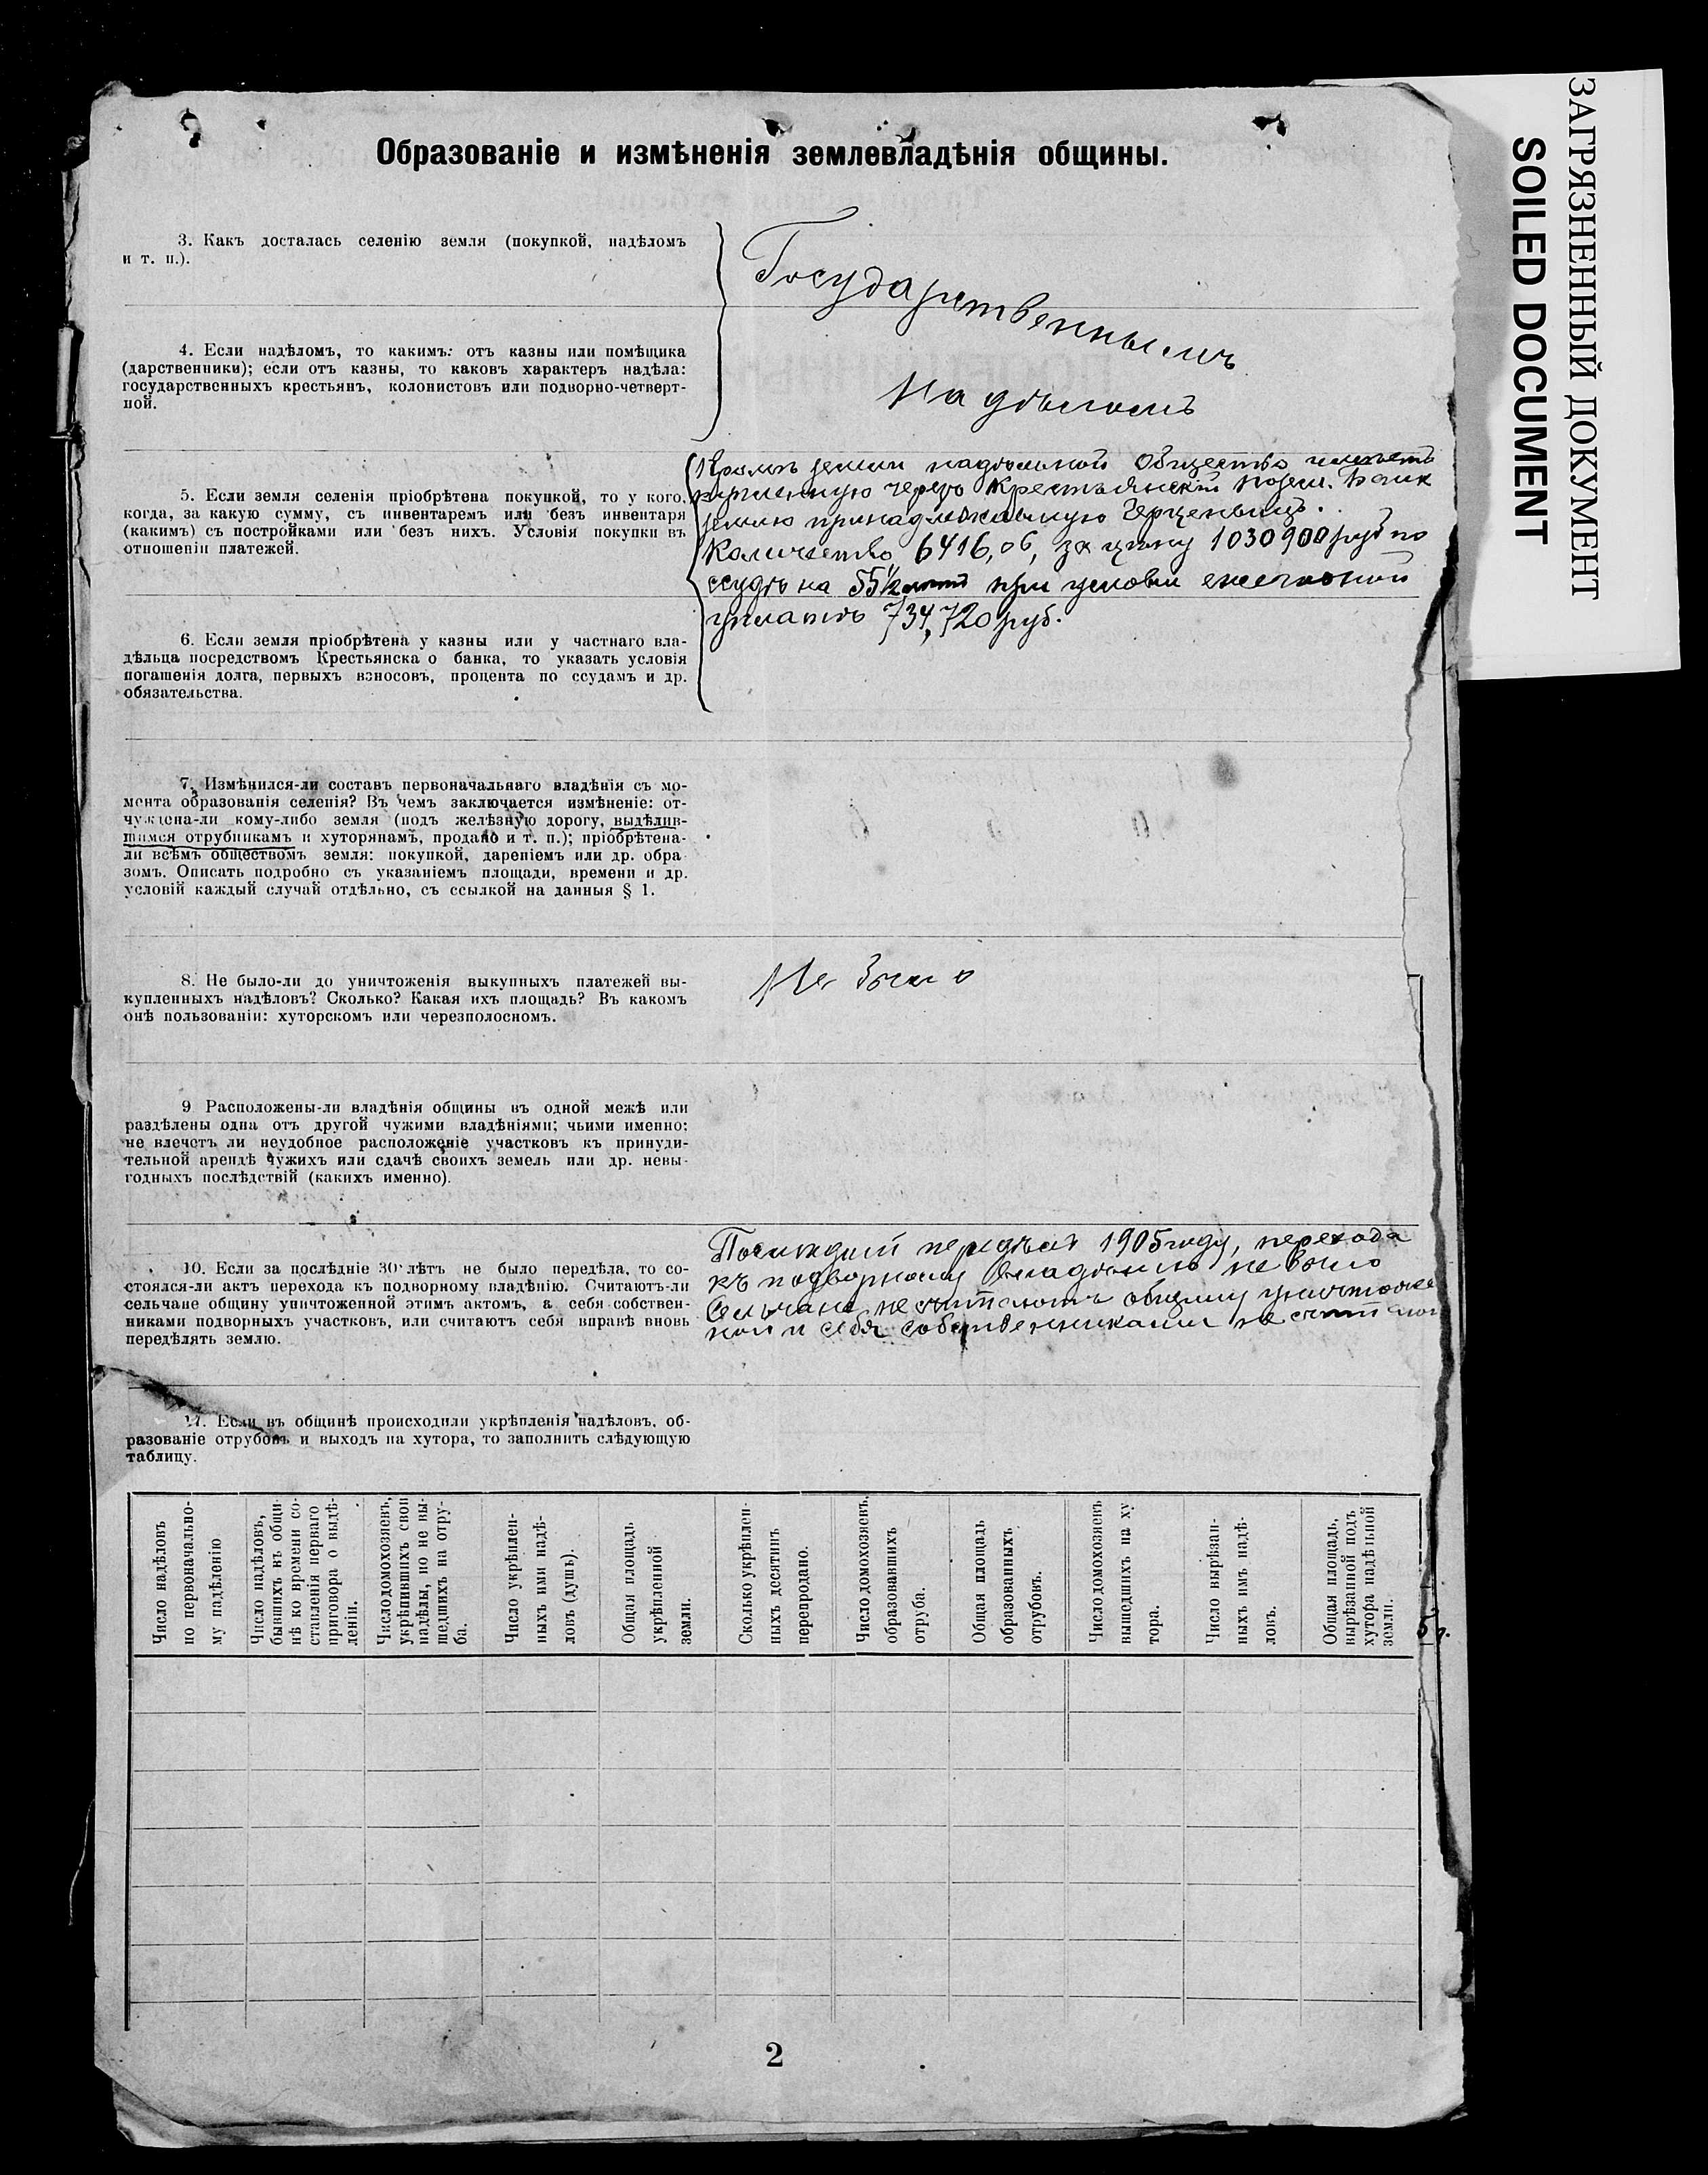 Образованіе и измѣненія землевладѣнія общины.
3. Какъ досталась селенію земля (покупкой, надѣломъ
и т. п.).
Государственнымъ
надѣломъ
4. Если надѣломъ, то какимъ: отъ казны или помѣщика
(дарственники); если отъ казны, то каковъ характеръ надѣла:
государственныхъ крестьянъ, колонистовъ или подворно-четверт-
ной.
5. Если земля селенія пріобрѣтена покупкой, то у кого,
когда, за какую сумму, съ инвентаремъ или безъ инвентаря
(какимъ) съ постройками или безъ нихъ. Условія покупки въ
отношеніи платежей.
Кромѣ земли надѣльной Общество имѣетъ
купленную черезъ Крестьянскій позем. Банк
землю принадлежавшую
Количество 6416,06, за цѣну 1030900 руб по
ссудѣ на 55½ при условіи ежегодной
уплатѣ 734,720 руб.
6. Если земля пріобрѣтена у казны или у частнаго вла-
дѣльца посредствомъ Крестьянска о банка, то указать условія
погашенія долга, первыхъ взносовъ, процента по ссудамъ и др.
обязательства.
7. Измѣнился-ли составъ первоначальнаго владѣнія съ мо-
мента образованія селенія? Въ чемъ заключается измѣненіе: от-
чуждена-ли кому-либо земля (подъ желѣзную дорогу, выдѣлив-
шимся отрубникамъ и хуторянамъ, продано и т. п.); пріобрѣтена-
ли всѣмъ обществомъ земля: покупкой, дареніемъ или др. обра
зомъ. Описать подробно съ указаніемъ площади, времени и др.
условій каждый случай отдѣльно, съ ссылкой на данныя § 1.
8. Не было-ли до уничтоженія выкупныхъ платежей вы-
купленныхъ надѣловъ? Сколько? Какая ихъ площадь? Въ какомъ
онѣ пользованіи: хуторскомъ или черезполосномъ.
Не было
9 Расположены-ли владѣнія общины въ одной межѣ или
раздѣлены одна отъ другой чужими владѣніями; чьими именно:
не влечетъ ли неудобное расположеніе участковъ къ принуди-
тельной арендѣ чужихъ или сдачѣ своихъ земель или др. невы-
годныхъ послѣдствій (какихъ именно).
10. Если за послѣдніе 30 лѣтъ не было передѣла, то со-
стоялся-ли актъ перехода къ подворному владѣнію. Считаютъ-ли
сельчане общину уничтоженной этимъ актомъ, а себя собствен-
никами подворныхъ участковъ, или считаютъ себя вправѣ вновь
передѣлять землю.
Последній передѣлъ 1905 году, перехода
къ подворному владѣнію не было
Сельчане не считаютъ общину уничтоже
ной и себя собственниками не считают
11. Если въ общинѣ происходили укрѣпленія надѣловъ, об-
разованіе отрубовъ и выходъ на хутора, то заполнить слѣдующую
таблицу.
Число надѣловъ
по первоначально-
му надѣленію
Число надѣловъ,
бывшихъ въ общи
нѣ ко времени со-
ставленія перваго
приговора о выдѣ-
леніи.
Число домохозяевъ,
укрѣпившихъ свои
надѣлы, но не вы-
шедшихъ на отру-
ба.
Число укрѣплен-
ныхъ ими надѣ-
ловъ (душъ).
Общая площадь
укрѣпленной
земли.
Сколько укрѣплен-
ныхъ десятинъ
перепродано.
Число домохозяевъ,
образовавшихъ
отруба.
Общая площадь
образованныхъ
отрубовъ.
Число домохозяевъ
вышедшихъ на ху
тора.
Число вырѣзан-
ныхъ имъ надѣ-
ловъ.
Общая площадь,
вырѣзанной подъ
хутора надѣльной
земли.
2
ЗАГРЯЗНЕННЫЙ ДОКУМЕНТ
SOILED DOCUMENT